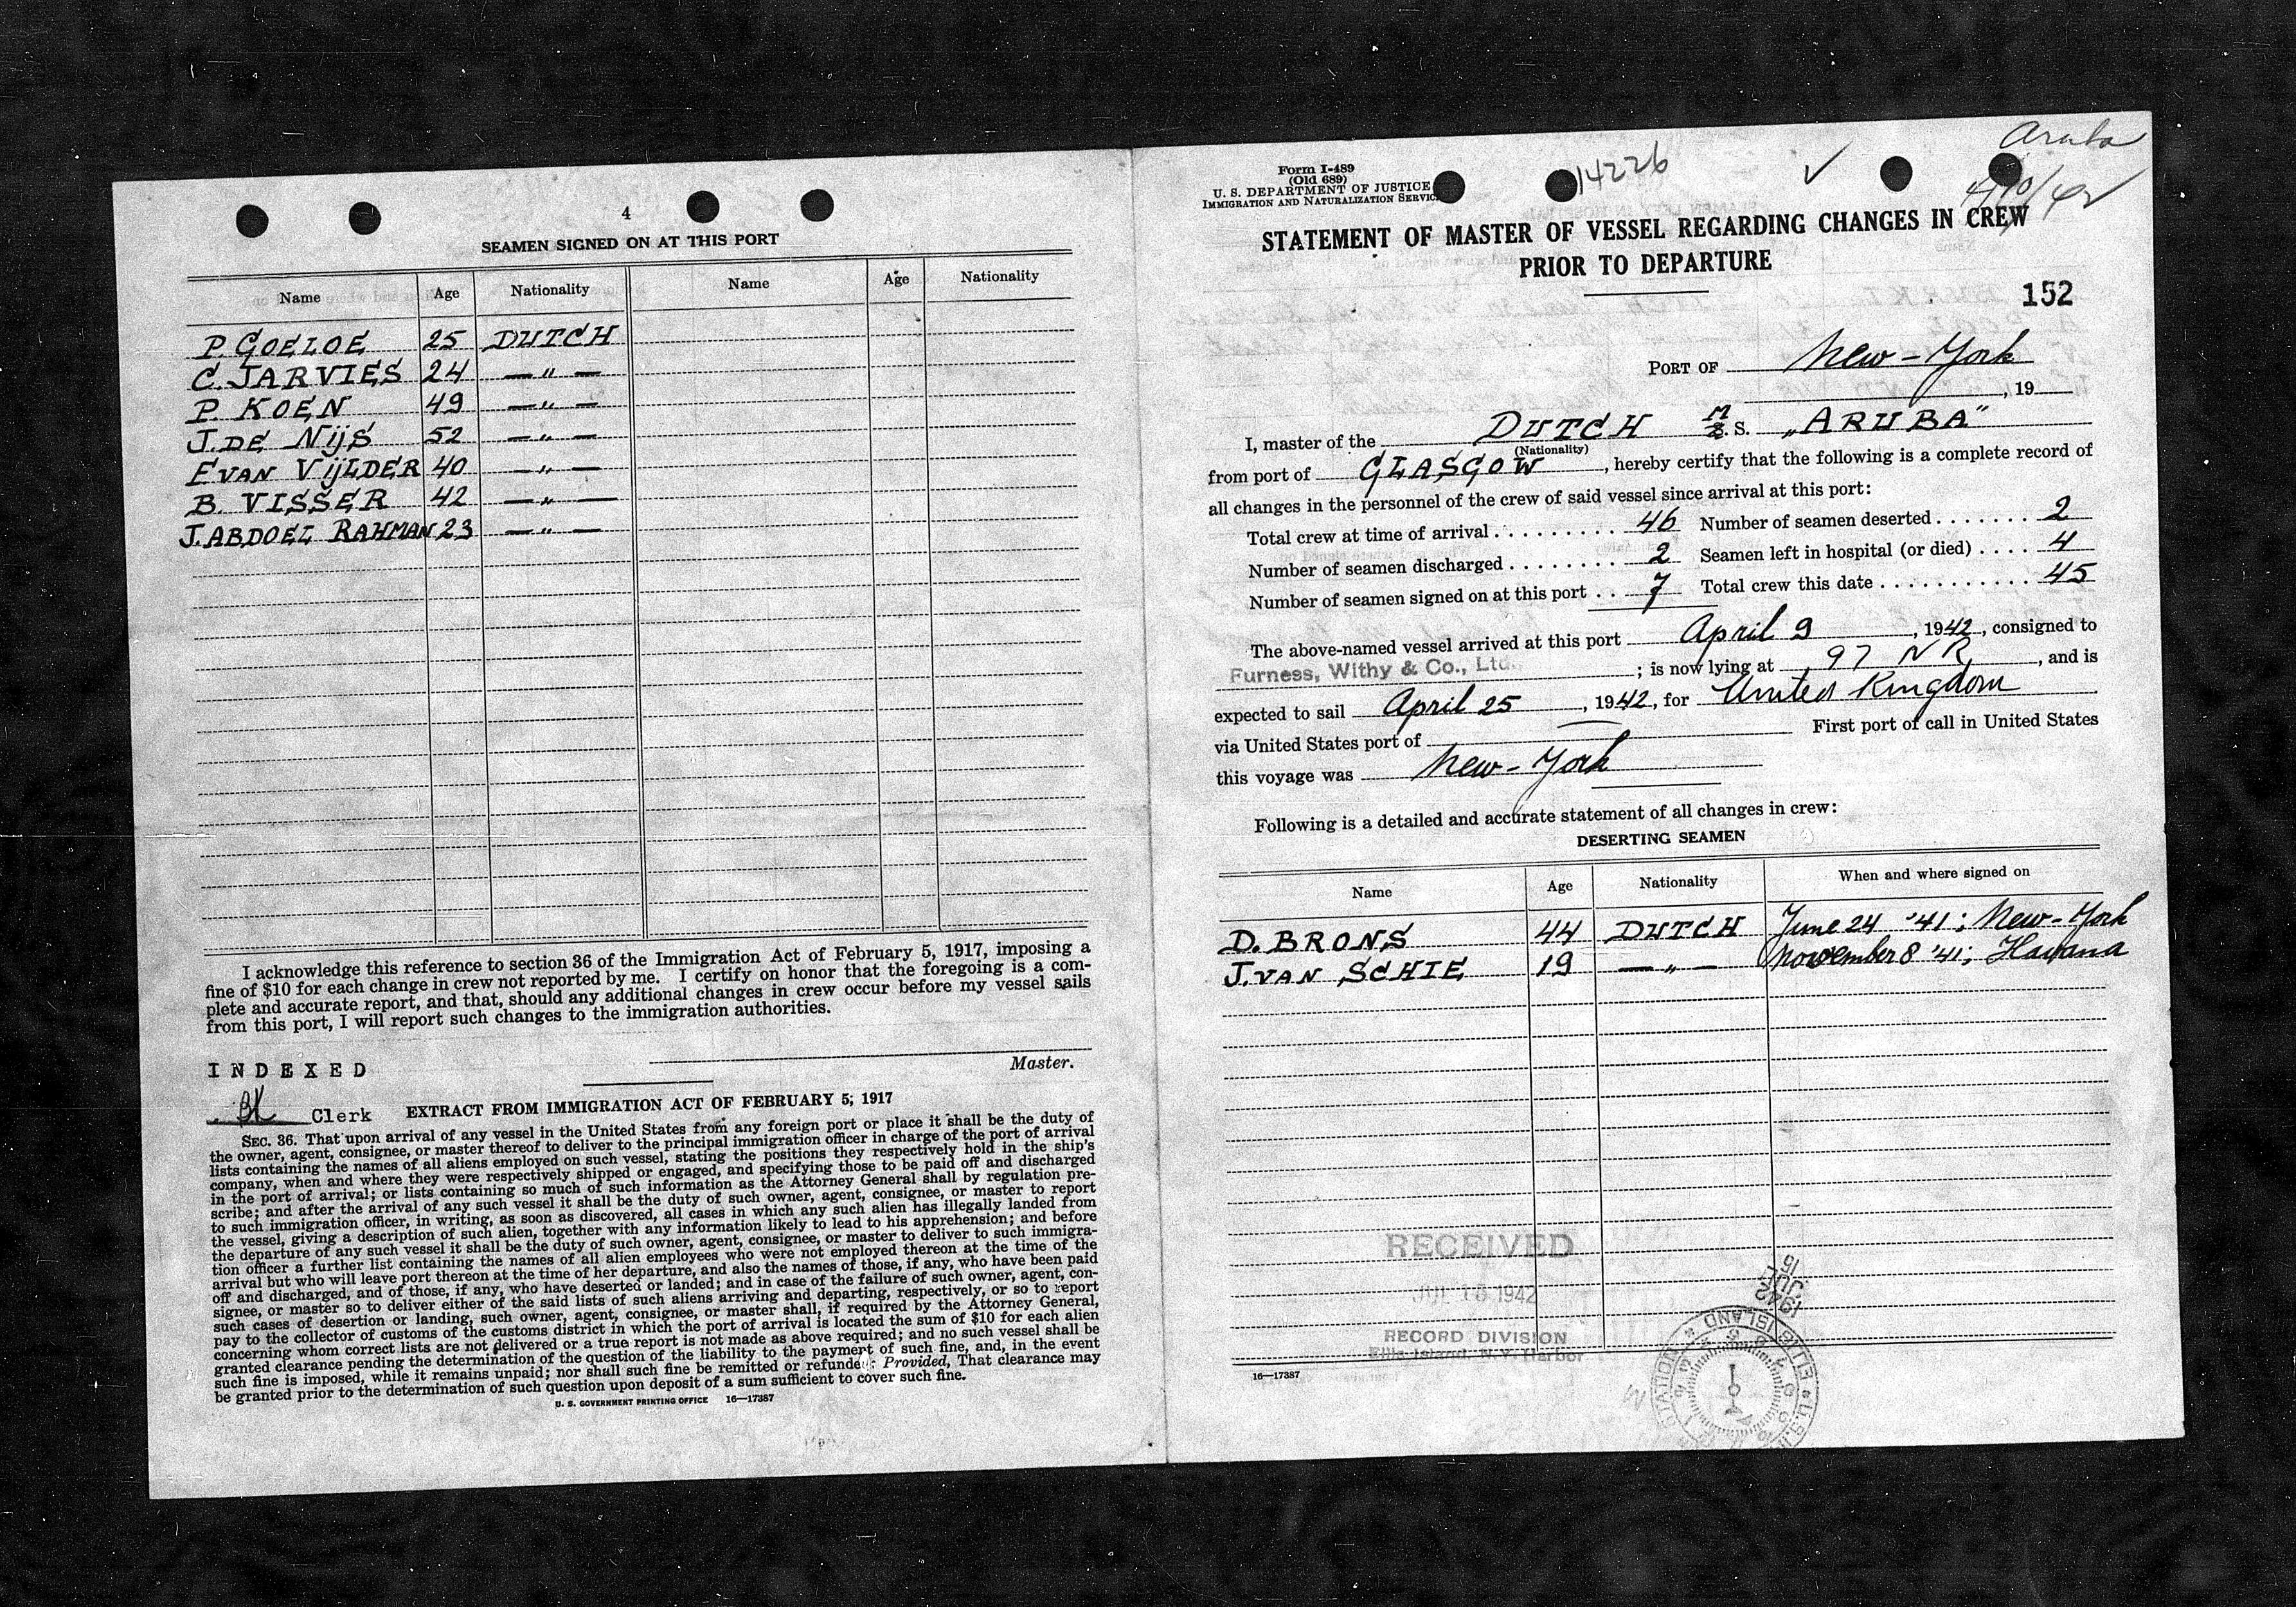 4
SEAMEN SIGNED ON AT THIS PORT
Name Age Nationality Name Age Nationality
P. GOELOE 25 DUTCH
C. JARVIES 24 —〃—
P. KOEN 49 —〃—
J. DE NijS 52 —〃—
E VAN VijLDER 40 —〃—
B. VISSER 42 —〃—
J. ABDOEL RAHMAN 23 —〃—
I acknowledge this reference to section 36 of the Immigration Act of February 5, 1917, imposing a
fine of $10 for each change in crew not reported by me. I certify on honor that the foregoing is a com-
plete and accurate report, and that, should any additional changes in crew occur before my vessel sails
from this port, I will report such changes to the immigration authorities.
Master.
INDEXED
BK Clerk
EXTRACT FROM IMMIGRATION ACT OF FEBRUARY 5, 1917
SEC. 36. That upon arrival of any vessel in the United States from any foreign port or place it shall be the duty of
the owner, agent, consignee, or master thereof to deliver to the principal immigration officer in charge of the port of arrival
lists containing the names of all aliens employed on such vessel, stating the positions they respectively hold in the ship's
company, when and where they were respectively shipped or engaged, and specifying those to be paid off and discharged
in the port of arrival; or lists containing so much of such information as the Attorney General shall by regulation pre-
scribe; and after the arrival of any such vessel it shall be the duty of such owner, agent, consignee, or master to report
to such immigration officer, in writing, as soon as discovered, all cases in which any such alien has illegally landed from
the vessel, giving a description of such alien, together with any information likely to lead to his apprehension; and before
the departure of any such vessel it shall be the duty of such owner, agent, consignee, or master to deliver to such immigra-
tion officer a further list containing the names of all alien employees who were not employed thereon at the time of the
arrival but who will leave port thereon at the time of her departure, and also the names of those, if any, who have been paid
off and discharged, and of those, if any, who have deserted or landed; and in case of the failure of such owner, agent, con-
signee, or master so to deliver either of the said lists of such aliens arriving and departing, respectively, or so to report
such cases of desertion or landing, such owner, agent, consignee, or master shall, if required by the Attorney General,
pay to the collector of customs of the customs district in which the port of arrival is located the sum of $10 for each alien
concerning whom correct lists are not delivered or a true report is not made as above required; and no such vessel shall be
granted clearance pending the determination of the question of the liability to the payment of such fine, and, in the event
such fine is imposed, while it remains unpaid; nor shall such fine be remitted or refunded: Provided, That clearance may
be granted prior to the determination of such question upon deposit of a sum sufficient to cover such fine.
U. S. GOVERNMENT PRINTING OFFICE 16—17387
Form I-489
(Old 689)
U. S. DEPARTMENT OF JUSTICE
IMMIGRATION AND NATURALIZATION SERVICE
14226
Aruba
4/10/42
STATEMENT OF MASTER OF VESSEL REGARDING CHANGES IN CREW
PRIOR TO DEPARTURE
152
PORT OF New-York
, 19
I, master of the DUTCH M S. S. „ARUBA”
(Nationality)
from port of GLASGOW, hereby certify that the following is a complete record of
all changes in the personnel of the crew of said vessel since arrival at this port:
Total crew at time of arrival 46 Number of seamen deserted 2
Number of seamen discharged 2 Seamen left in hospital (or died) 4
Number of seamen signed on at this port 7 Total crew this date 45
The above-named vessel arrived at this port April 9, 1942, consigned to
Furness, Withy & Co., Ltd.; is now lying at 97 NR, and is
expected to sail April 25, 1942, for United Kingdom
via United States port of — First port of call in United States
this voyage was New-York
Following is a detailed and accurate statement of all changes in crew:
DESERTING SEAMEN
Name Age Nationality When and where signed on
D. BRONS 44 DUTCH June 24 '41; New-York
J. VAN SCHIE 19 —〃— November 8 '41; Havana
RECEIVED
JUL 16 1942
RECORD DIVISION
Ellis Island, N.Y. Harbor
1942
JUL
15
ELLIS ISLAND
STATION
16—17387